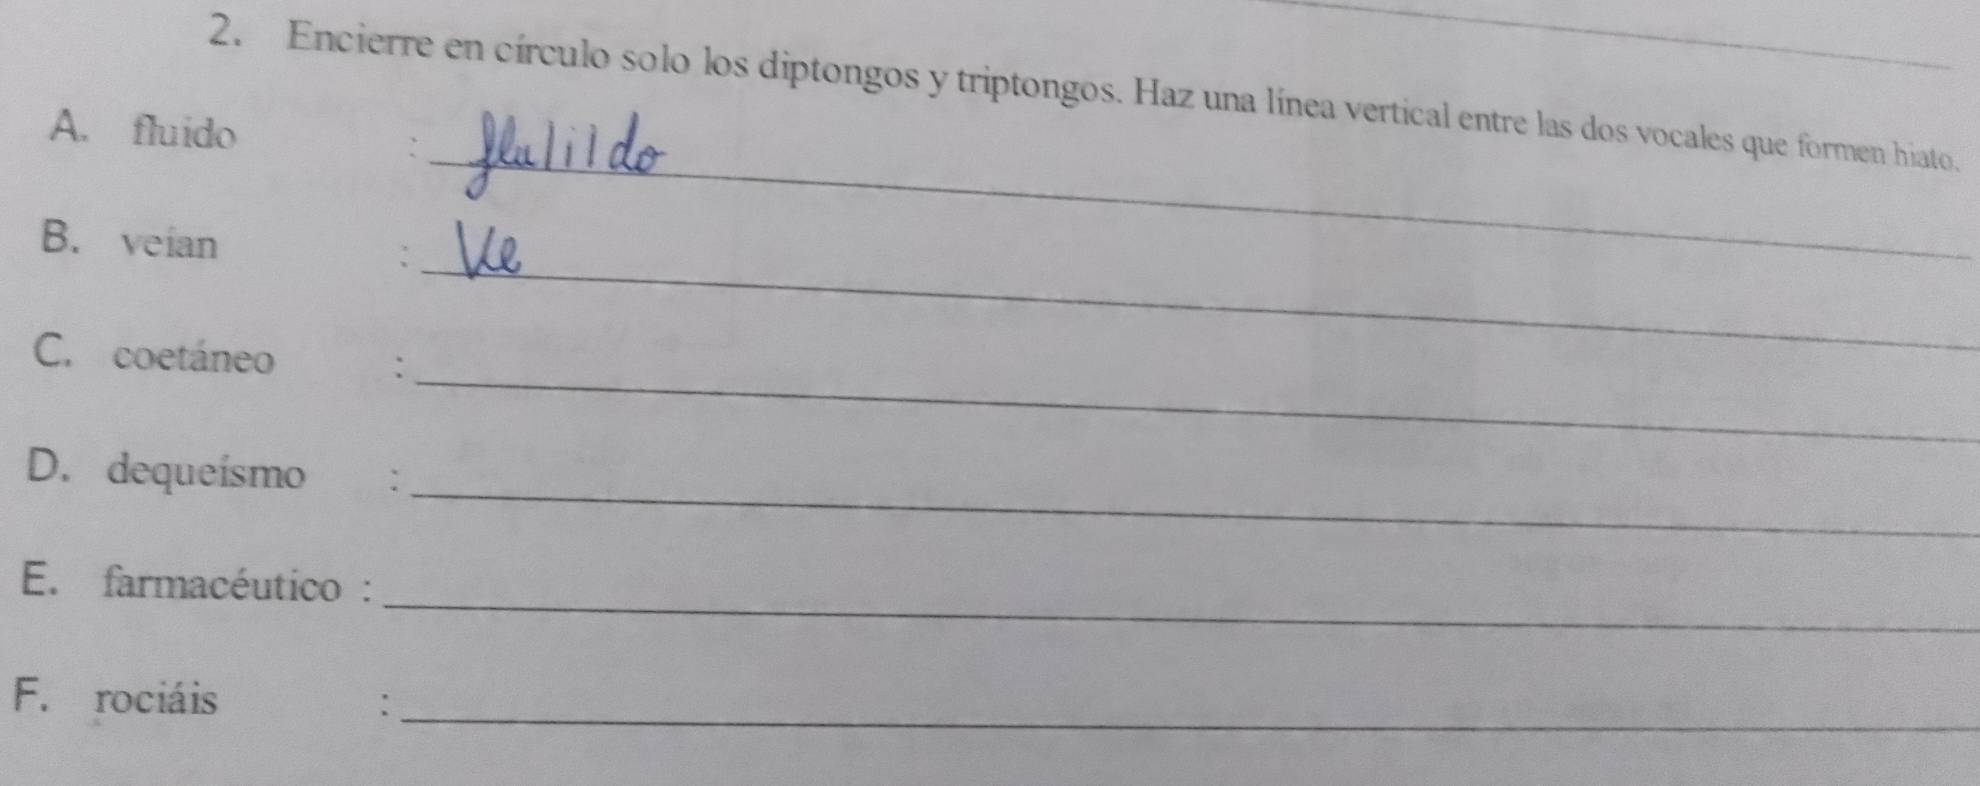 2. Encierre en círculo solo los diptongos y triptongos. Haz una línea vertical entre las dos vocales que formen hiato.
A. fluido : flu|i|do
B. veían : Ve
C. coetáneo :
D. dequeísmo :
E. farmacéutico :
F. rociáis :